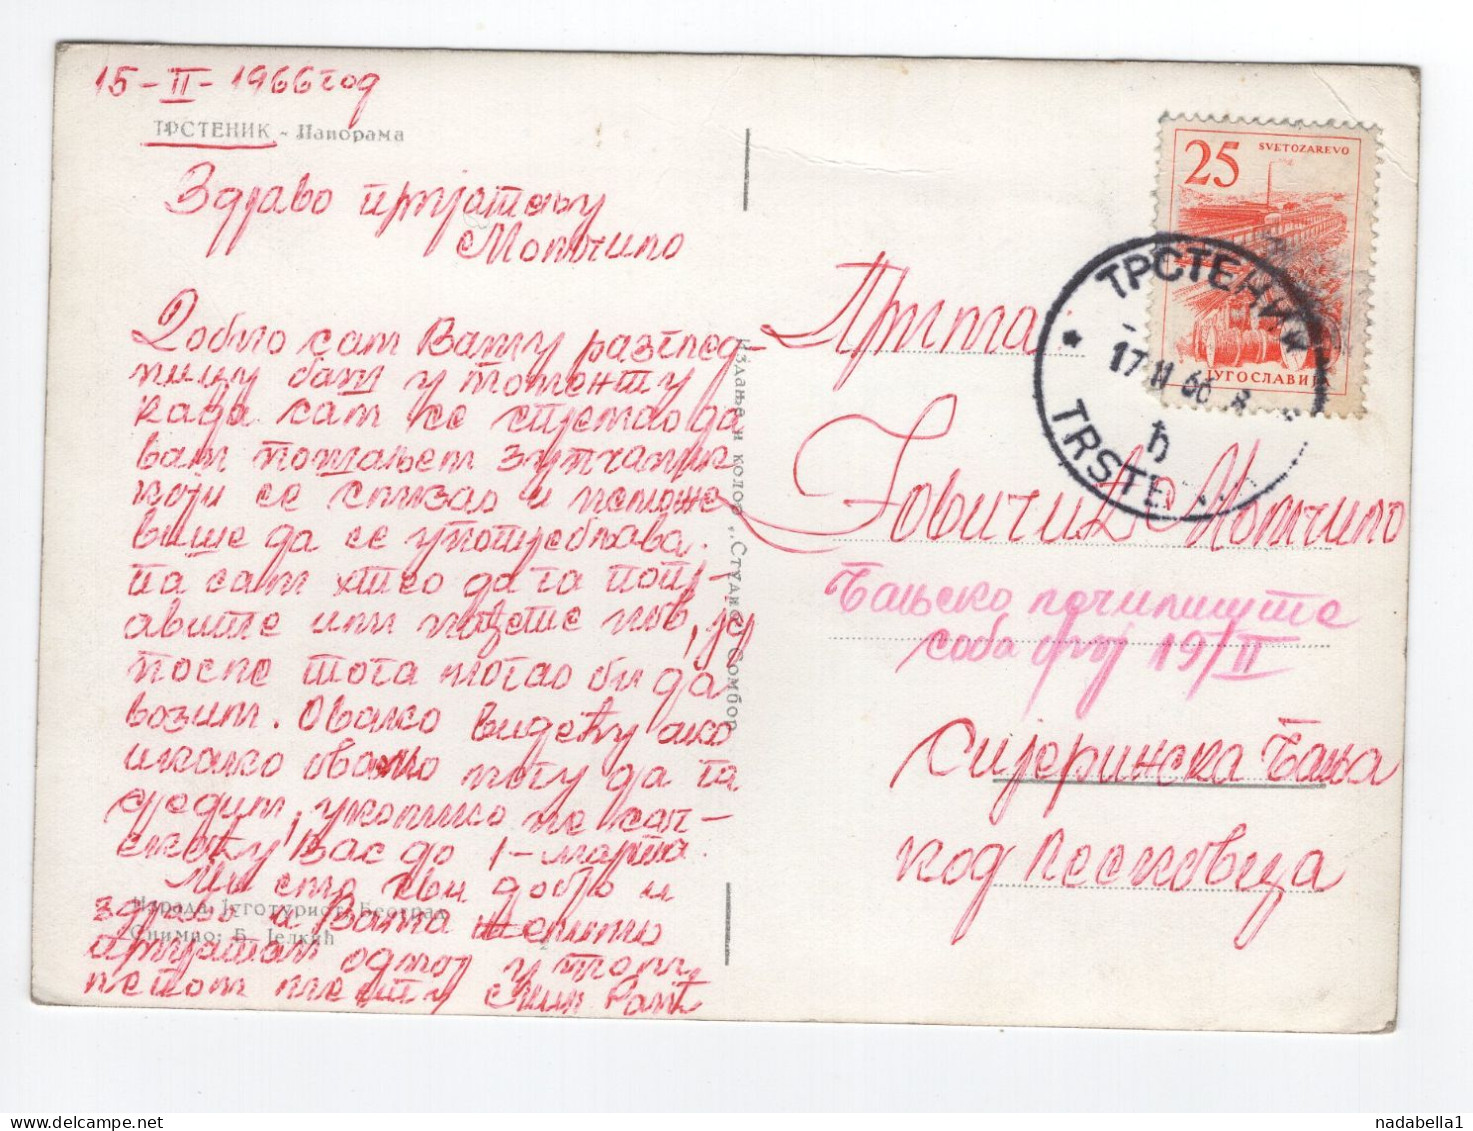 15-II-1966 год
ТРСТЕНИК - Панорама
Здраво пријатељу
Момчило
Добио сам Вашу разглед-
ницу баш у моменту
када сам се спремао да
вам пошаљем
који се и не може
више да се употребљава.
па сам хтео да га попр-
авите или нов, јер
после тога могао би да
возим. Овамо видећу ако
икако овамо могу да га
средим, уколико не сач-
Вас до 1-марта.
Ми смо сви добро и
здраво а Вама желимо
пријатан одмор у том
лепом месту
Израда: Југотурист, Београд
Снимио: Б. Јелкић
Издање и колор „Студио“ Сомбор
25
SVETOZAREVO
ЈУГОСЛАВИЈА
ТРСТЕНИК
17 II 66
ђ
TRSTE
Јовичић Момчило
Бањско лечилиште
соба број 19/II
Сијеринска Бања
код Лесковца
nadabella1